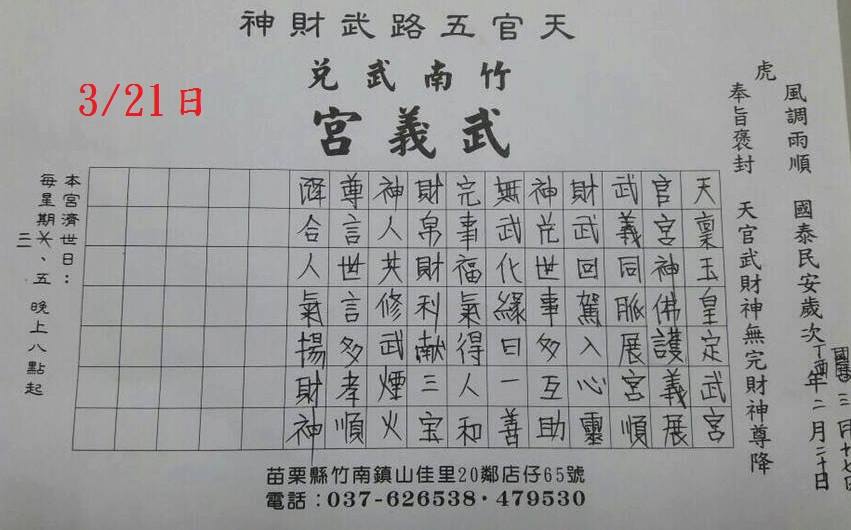 天官五路武財神
竹南武兌
武義宮
3/21日
風調雨順 國泰民安歲次丁酉年二月二十日
國曆三月十七日
虎
奉旨褒封 天官武財神無完財神尊降
天稟玉皇定武宮
官宮神佛護義展
武義同脈展宮順
財武回駕入心靈
神兌世事多互助
無武化緣日一善
完事福氣得人和
財帛財利献三宝
神人共修武煙火
尊言世言多孝順
合人氣揚財神
本宮濟世日：
每星期三、五 晚上八點起
苗栗縣竹南鎮山佳里20鄰店仔65號
電話：037-626538·479530